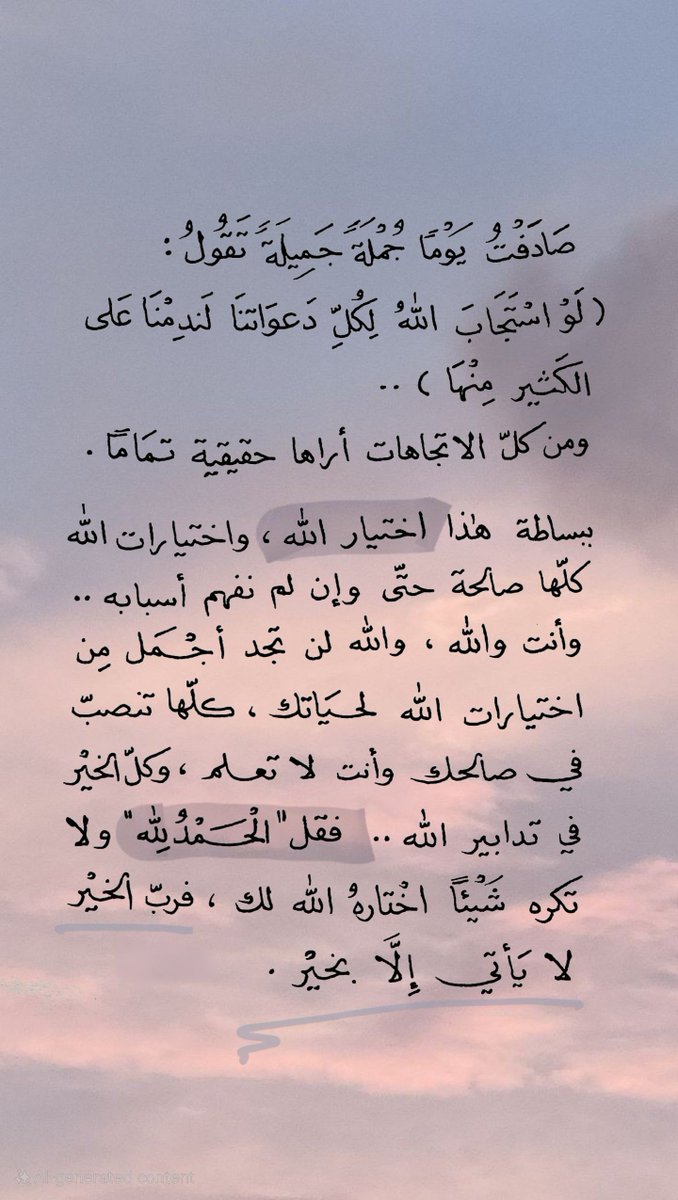 صَادَفْتُ يَوْمًا جُمْلَةً جَمِيلَةً تَقُولُ :
( لَوْ اسْتَجَابَ اللهُ لِكُلِّ دَعوَاتنَا لَندِمْنَا عَلى
الكَثير مِنْهَا ) ..
ومن كلّ الاتجاهات أراها حقيقية تمَامًا .
ببساطة هٰذا اختيار الله ، واختيارات الله
كلّها صالحة حتّى وإن لم نفهم أسبابه ..
وأنت والله ، والله لن تجد أجْمَل مِن
اختيارات الله لحيَاتك ، كلّها تنصبّ
في صالحك وأنت لا تعلم ، وكلّ الخيْر
في تدابير الله .. فقل "الْحَمْدُلِله" ولا
تكره شَيْئًا اخْتارهُ الله لك ، فربّ الخيْر
لا يَأتي إِلَّا بخيْر .
AI-generated content